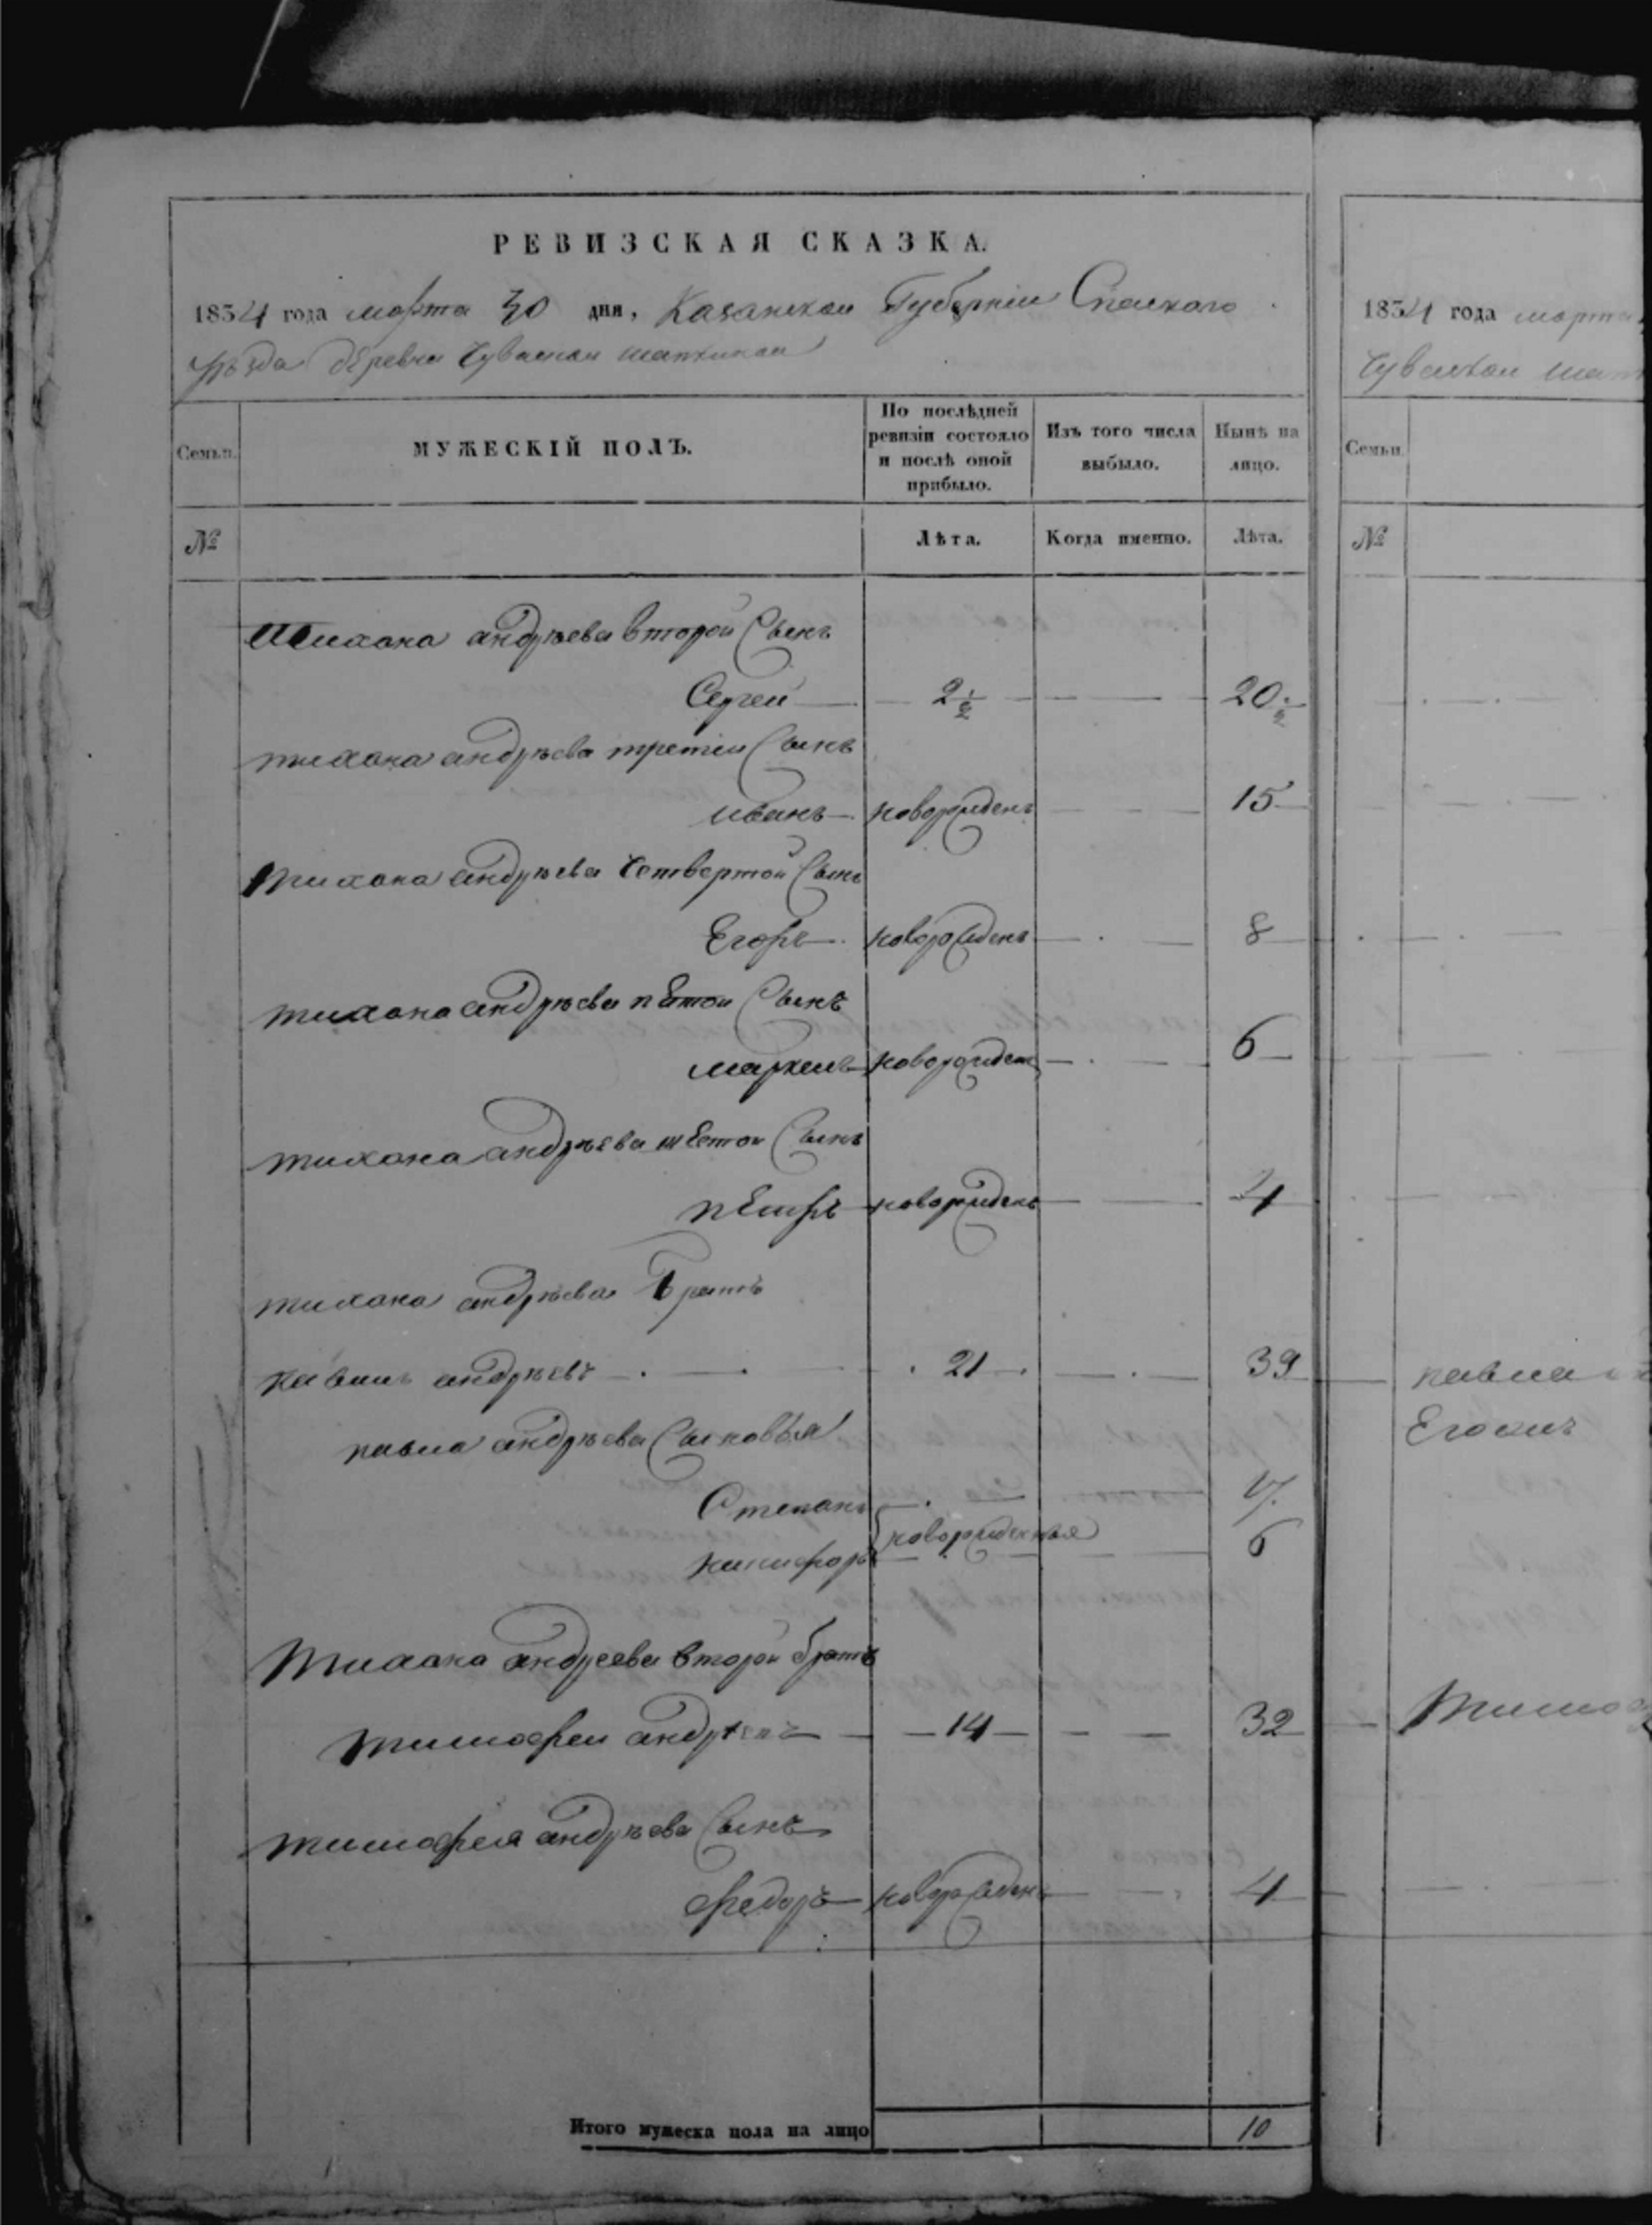 РЕВИЗСКАЯ СКАЗКА.
1854 года марта 30 дня, Казанской Губерніи Спаскаго
уѣзда деревни Чувашской
Семьи.
МУЖЕСКІЙ ПОЛЪ.
По послѣдней ревизіи состояло и послѣ оной прибыло.
Изъ того числа выбыло.
Нынѣ на лицо.
№
Лѣта.
Когда именно.
Лѣта.
Тихона андрѣева второй Сынъ
Сергей 2½ 20½
тихона андрѣева третіи Сынъ
иванъ новорожденъ 15
Тихона андрѣева четвертой Сынъ
Егоръ новорожденъ 8
тихона андрѣева пЕтои Сынъ
маркелъ новорожденъ 6
тихона андрѣева шЕстои Сынъ
пЕтръ новорожденъ 4
тихона андрѣева Братъ
павилъ андрѣевъ 21 39
павла андрѣева Сыновья
Степанъ
новорожденныя
никифоръ 6
Тихона андреева второй братъ
тимофеи андрѣевъ 14 32
тимофея андрѣева Сынъ
федоръ новорожденъ 4
Итого мужеска пола на лицо 10
1854 года марта
Чувашской
Семьи
№
павла
Тимоф